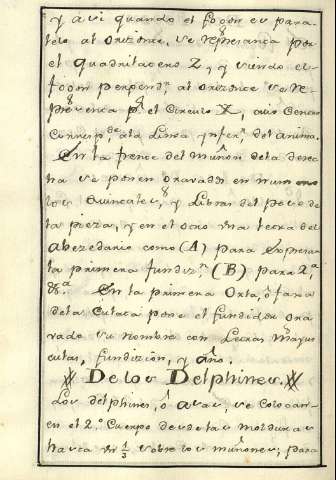 y asi quando el fogon es para-
lelo al orizonte, se representa por
el quadrilatero Z, y siendo el
fogon perpend.r al orizonte se re-
presenta p.r el Circulo X, cuio Centro
Corresp.de ala Linea ynfer.r del anima.
En la frente del muñon dela derecha
se ponen gravados en numeros
los quintales, y Libras del peso de
la pieza, y en el otro una letra del
abezedario como (A) para expresar
la primera fundiz.n (B) para 2.a
&.a En la primera Orla, ô faxa
dela Culata pone el fundidor gra
vado su nombre con Letras Mayus
culas, fundizion, y año.
De los Delphines.
Los delphines, ô asas, se colocan
en el 2.o Cuerpo desde las molduras
hasta 1/3 sobre los muñones; para